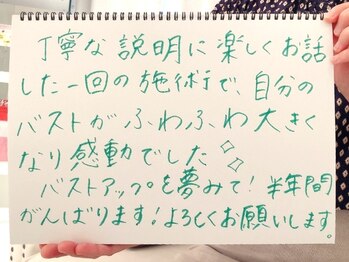 丁寧な説明に楽しくお話
した一回の施術で、自分の
バストがふわふわ大きく
なり感動でした✧✧
バストアップを夢みて!半年間
がんばります!よろしくお願いします。